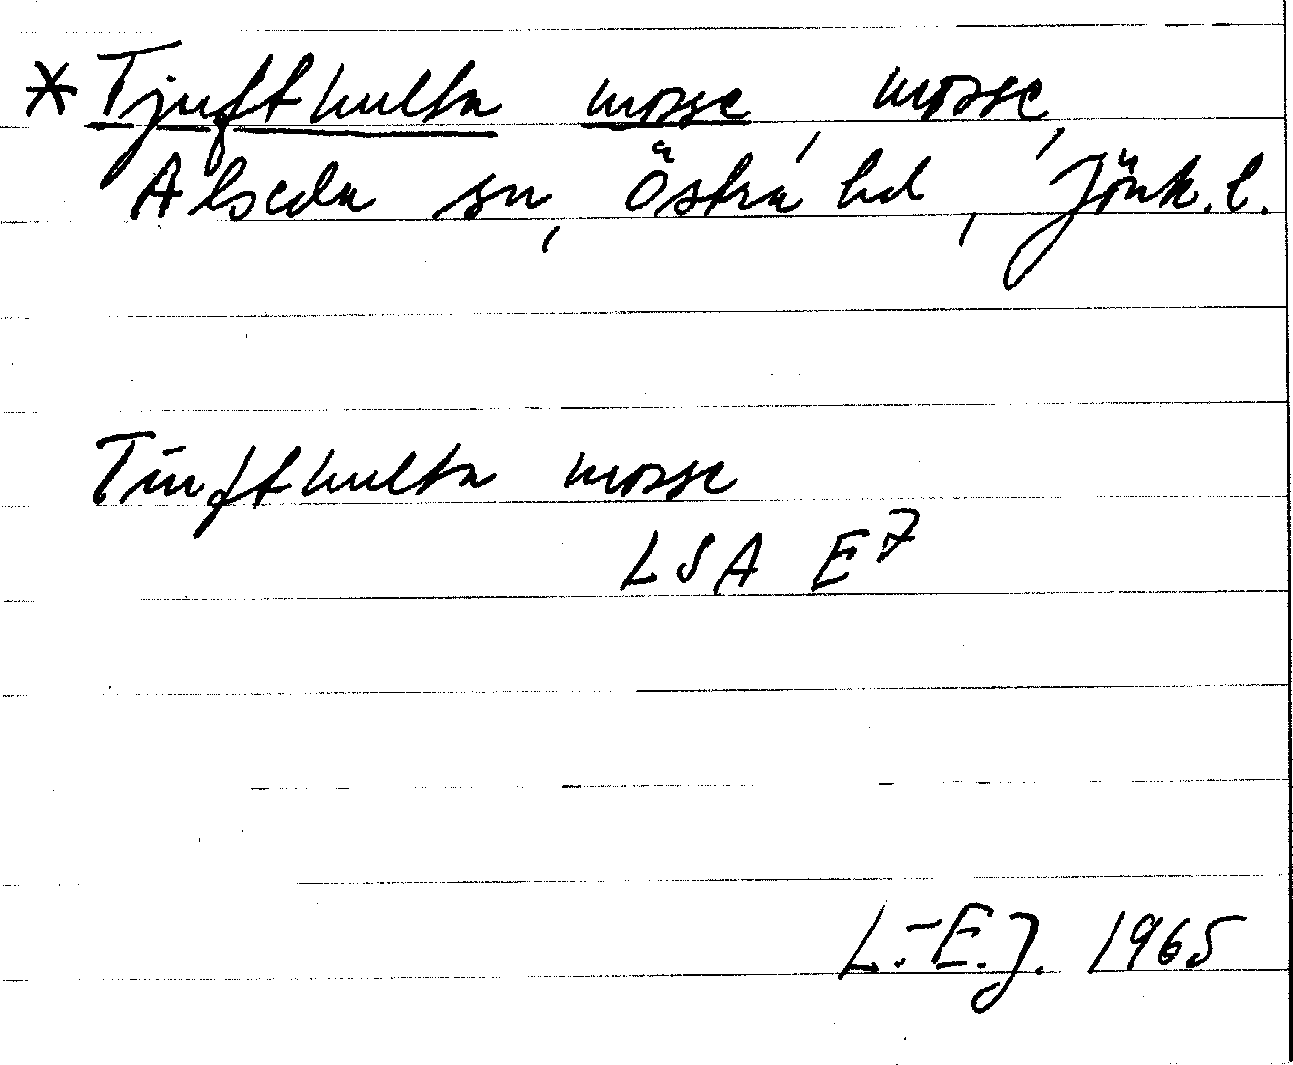 * Tjufthulta mosse, mosse,
Alseda sn, Östra hd, Jönk. l.
Tiufthulta mosse
LSA E7
L.-E.J. 1965